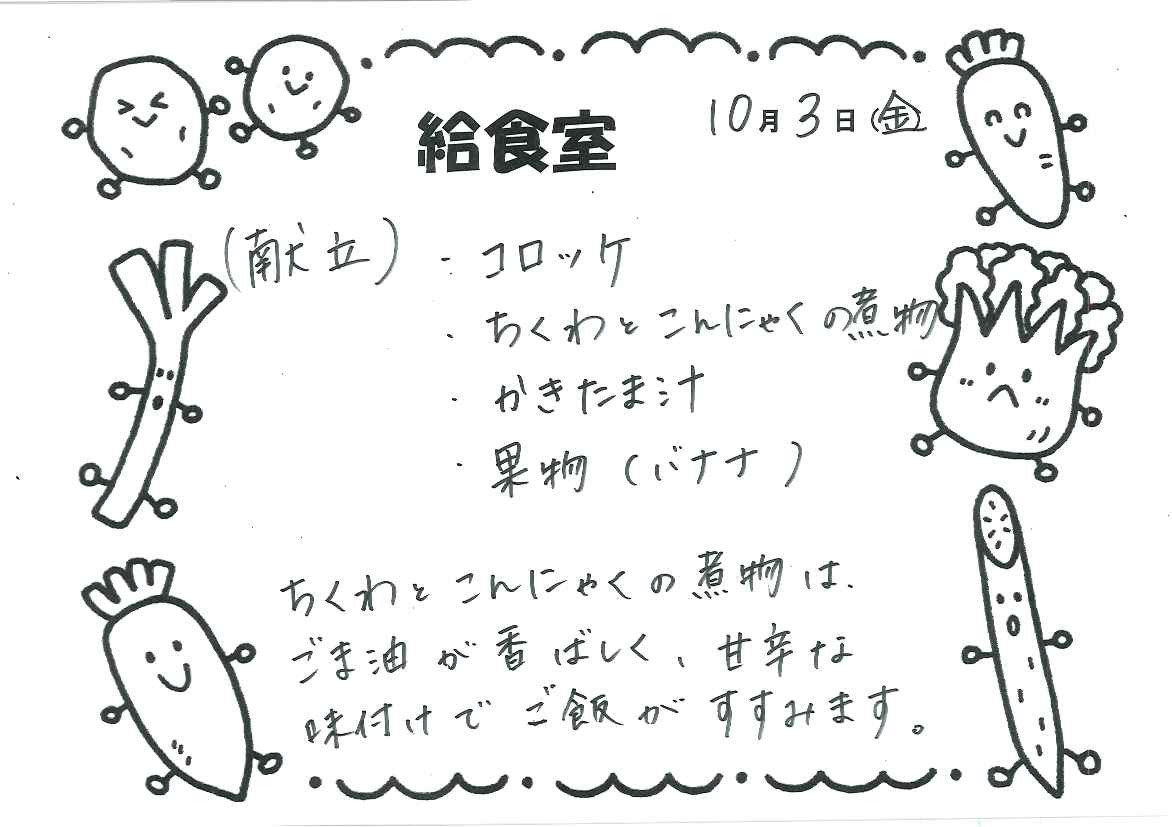 給食室
10月3日(金)
(献立)・コロッケ
・ちくわとこんにゃくの煮物
・かきたま汁
・果物(バナナ)
ちくわとこんにゃくの煮物は、
ごま油が香ばしく、甘辛な
味付けでご飯がすすみます。